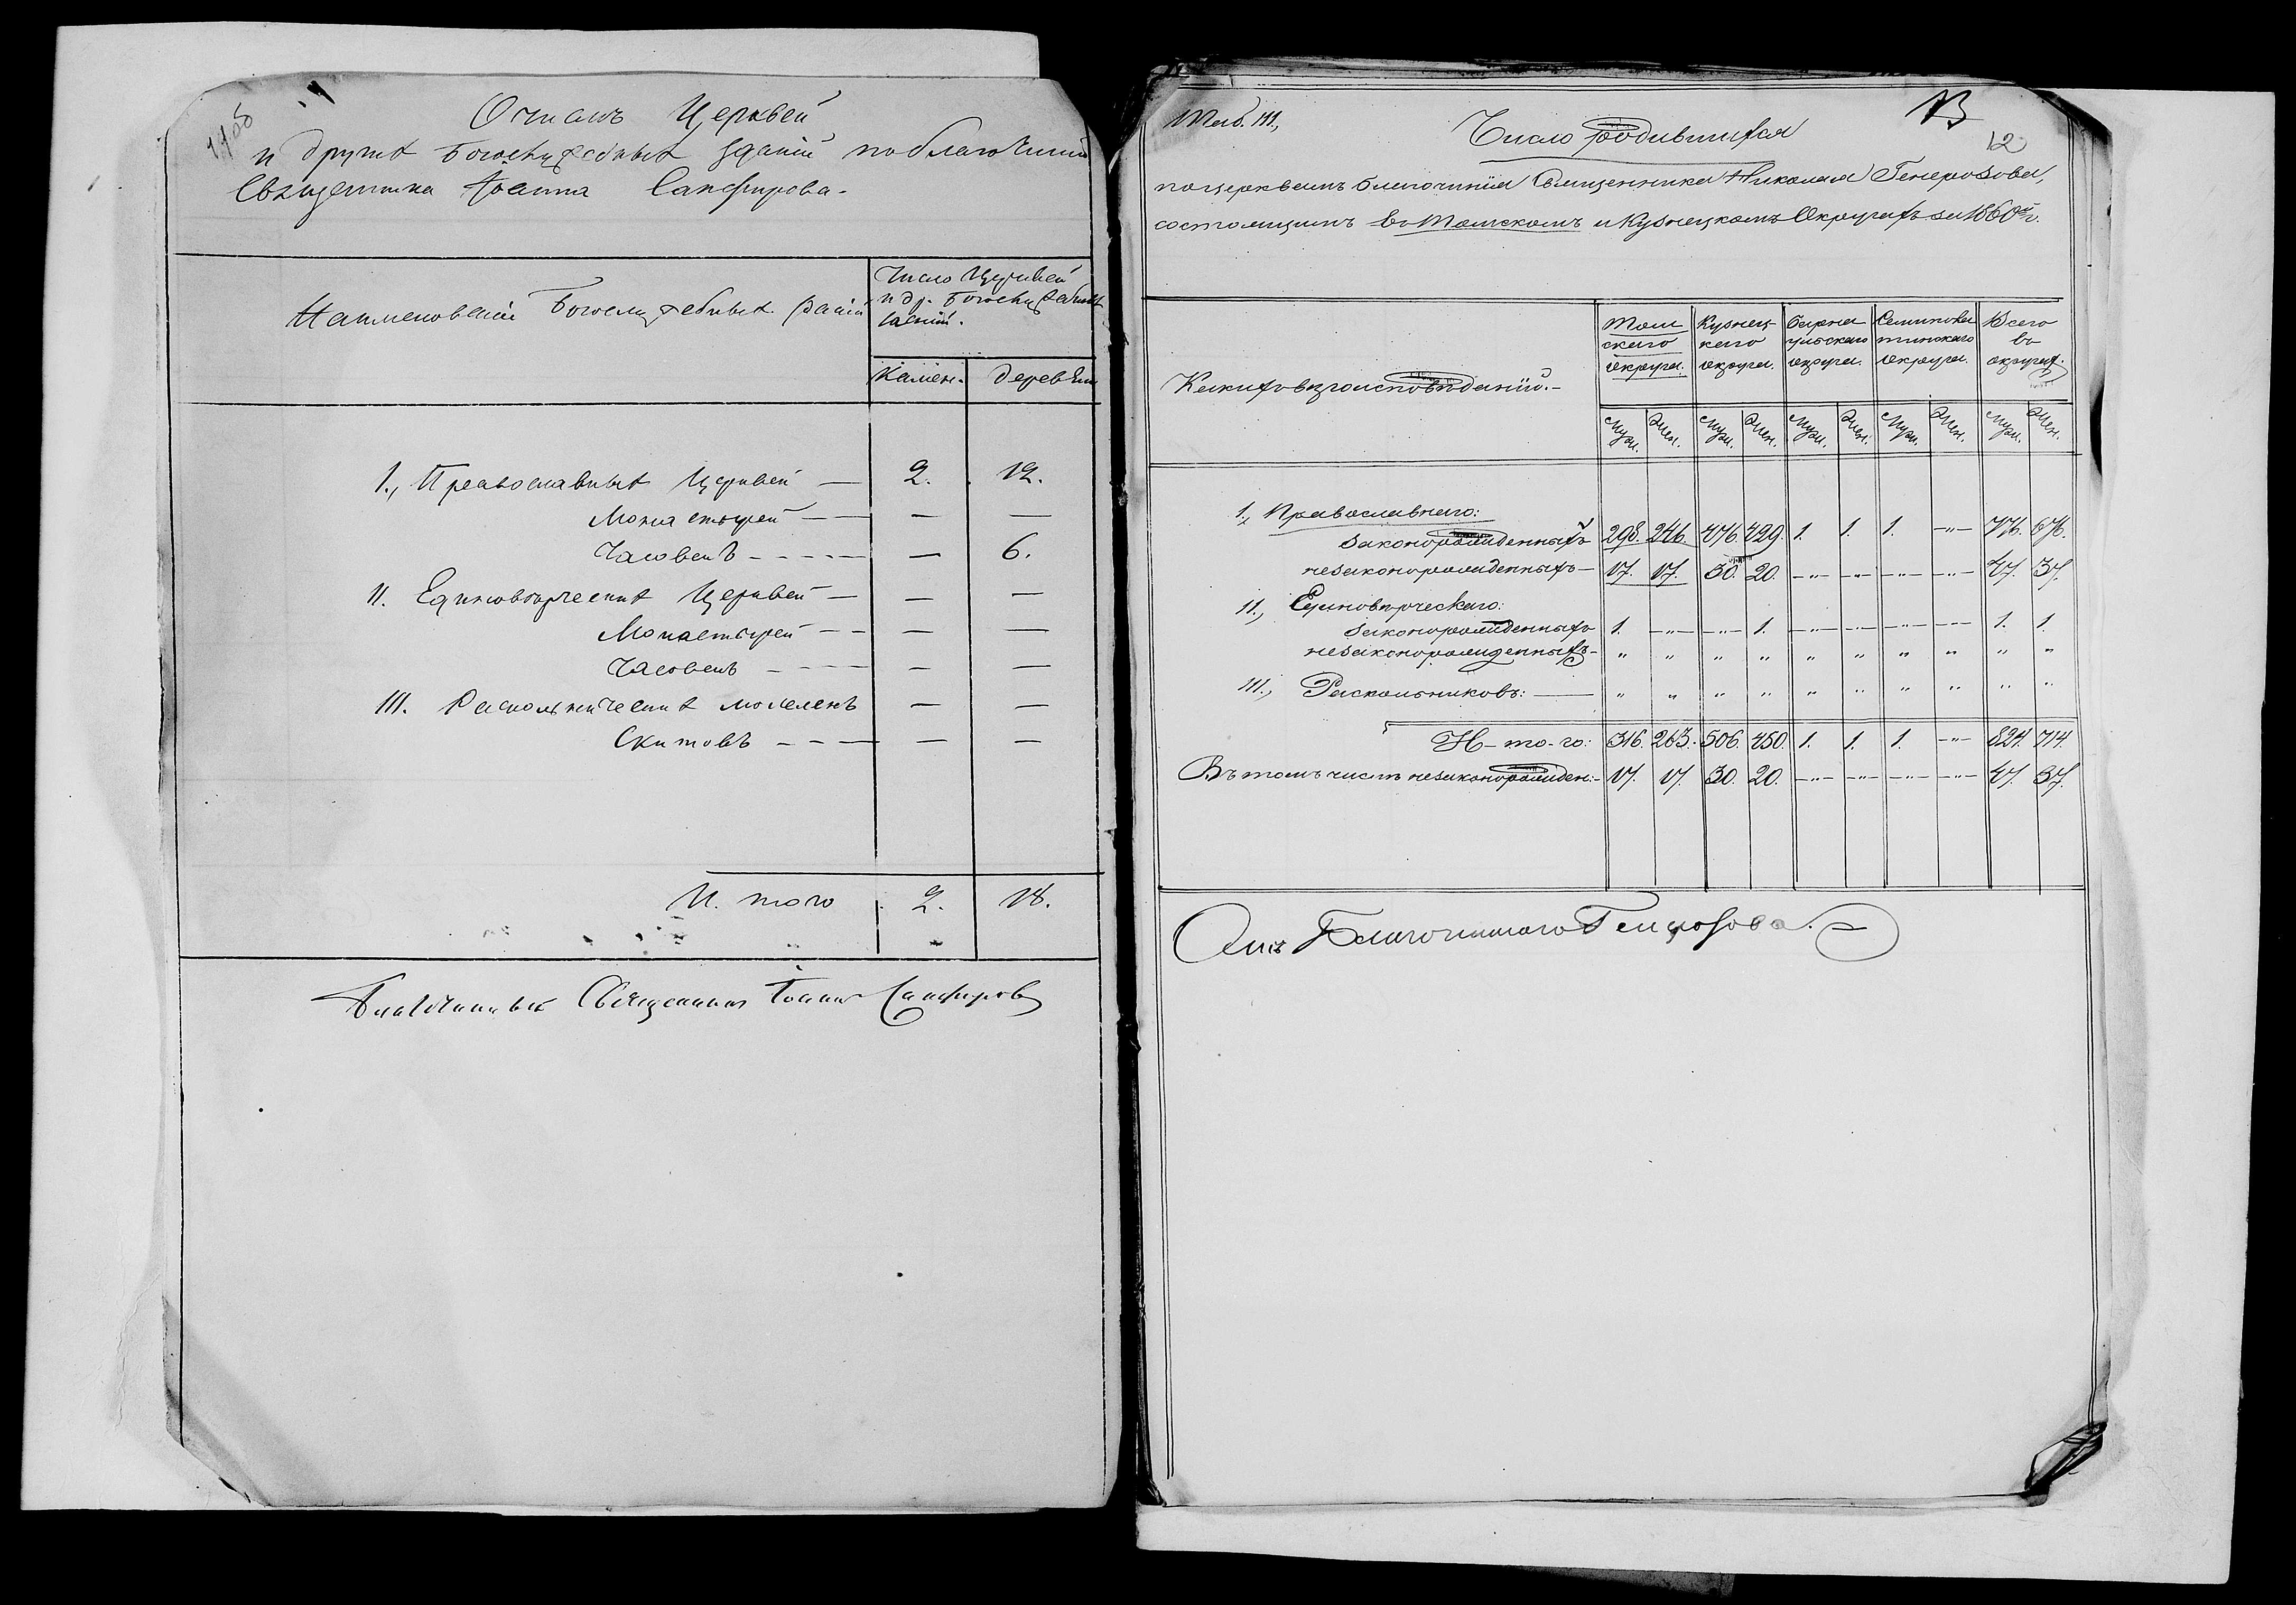 О числѣ Церквей
и другихъ Богослужебныхъ зданій по благочинію
Священника Іоанна Сапфирова.
Наименованіе Богослужебныхъ зданій
Число Церквей
и др. Богослужебныхъ
зданій.
Камен. Деревян
I., Православныхъ Церквей — 2. 12.
Монастырей — — —
Часовенъ — — 6.
II. Единовѣрческихъ Церквей — — —
Монастырей — — —
Часовенъ — — —
III. Раскольническихъ молеленъ — —
Скитовъ — — —
И того 2. 18.
Благочинный Священникъ Іоаннъ Сапфировъ
Таб. III,
13
12
Число родившихся
по церквамъ благочинія Священника Николая Генерозова,
состоящимъ въ Томскомъ и Кузнецкомъ Округахъ за 1860й г.
Какихъ вѣроисповѣданій.
Томскаго округа. Кузнецкаго округа. Барнаульскаго округа. Семипалатинскаго округа. Всего въ округахъ.
Муж. Жен. Муж. Жен. Муж. Жен. Муж. Жен. Муж. Жен.
1., Православнаго:
законорожденныхъ 298. 246. 476. 429. 1. 1. 1. —"— 776. 676.
незаконорожденныхъ — 17. 17. 30. 20. —"— —"— —"— —"— 47. 37.
11., Единовѣрческаго:
законорожденныхъ 1. —"— —"— 1. —"— —"— —"— —"— 1. 1.
незаконорожденныхъ - " " " " " " " " " "
111., Раскольниковъ: — " " " " " " " " " "
И - то - го: 316. 263. 506. 450. 1. 1. 1. —"— 824. 714.
Въ томъ числѣ незаконорожден: - 17. 17. 30. 20. —"— —"— —"— —"— 47. 37.
Благочиннаго Генерозова.